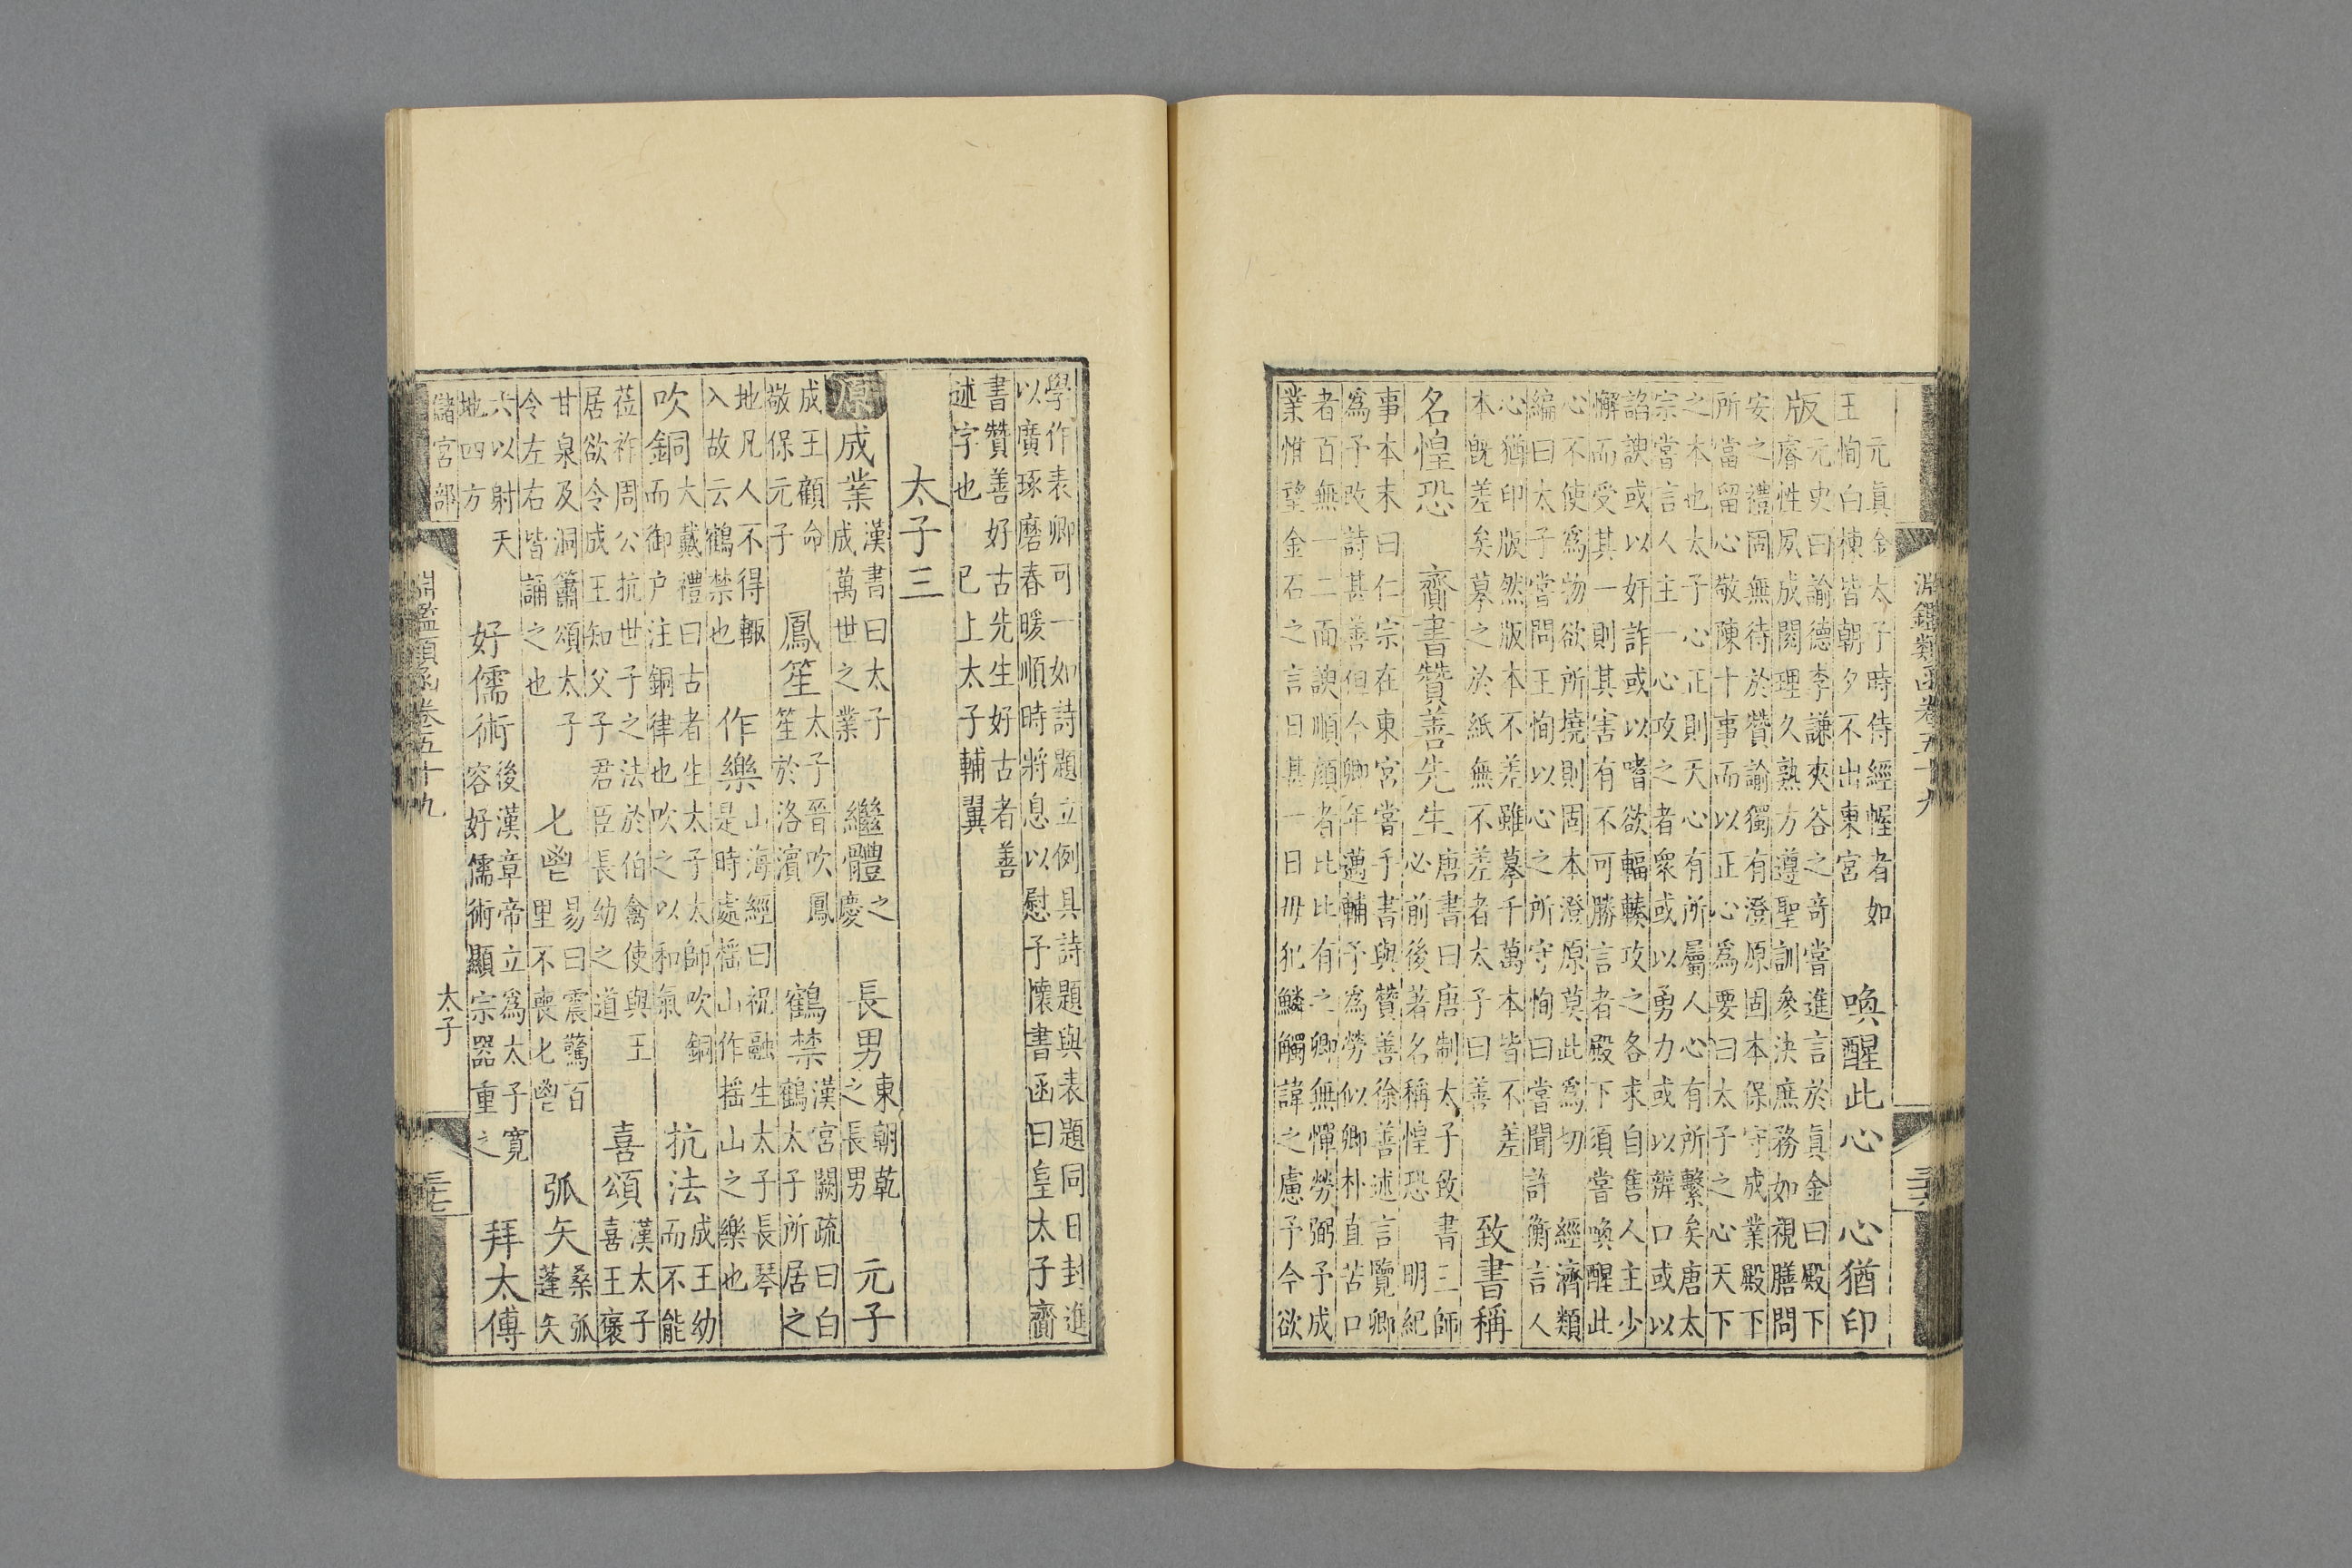 淵鑑類函卷五十九
元眞金太子時侍經幄者如
王恂白棟皆朝夕不出東宮
喚醒此心　心猶印
版
元史曰諭德李謙夾谷之奇嘗進言於眞金曰殿下
睿性夙成閱理久熟方遵聖訓參決庶務如視膳問
安之禮固無待於贊諭獨有澄原固本保守成業殿下
所當留心敬陳十事而以正心爲要曰太子之心天下
之本也太子心正則天心有所屬人心有所繫矣唐太
宗嘗言人主一心攻之者衆或以勇力或以辨口或以
諂諛或以奸詐或以嗜欲輻輳攻之各求自售人主少
懈而受其一則其害有不可勝言者殿下須嘗喚醒此
心不使爲物欲所撓則固本澄原莫此爲切　經濟類
編曰太子嘗問王恂以心之所守恂曰嘗聞許衡言人
心猶印版然版本不差雖摹千萬本皆不差
本旣差矣摹之於紙無不差者太子曰善
致書稱
名惶恐　齋書贊善先生
唐書曰唐制太子致書三師
必前後著名稱惶恐　明紀
事本末曰仁宗在東宮嘗手書與贊善徐善述言覽卿
爲予改詩甚善但今卿年邁輔予爲勞似卿朴直苦口
者百無一二而諛順顔者比比有之卿無憚勞弼予成
業惟望金石之言日甚一日毋犯鱗觸諱之慮予今欲
學作表卿可一如詩題立例具詩題與表題同日封進
以廣琢磨春暖順時將息以慰予懷書函曰皇太子齋
書贊善好古先生好古者善
述字也　已上太子輔翼
太子三
原　成業
漢書曰太子
成萬世之業
繼體
之
慶
長男
東朝乾
之長男
元子
成王顧命
敬保元子
鳳笙
太子晉吹鳳
笙於洛濱
鶴禁
漢宮闕疏曰白
鶴太子所居之
地凡人不得輙
入故云鶴禁也
作樂
山海經曰祝融生太子長琴
是時處榣山作榣山之樂也
吹銅
大戴禮曰古者生太子太師吹銅
而御户注銅律也吹之以和氣
抗法
成王幼
而不能
莅祚周公抗世子之法於伯禽使與王
居欲令成王知父子君臣長幼之道
喜頌
漢太子
喜王褒
甘泉及洞簫頌太子
令左右皆誦之也
匕鬯
易曰震驚百
里不喪匕鬯
弧矢
桑弧
蓬矢
六以射天
地四方
好儒術
後漢章帝立爲太子寬
容好儒術顯宗器重之
拜太傅
儲宮部
淵鑑類函卷五十九
太子